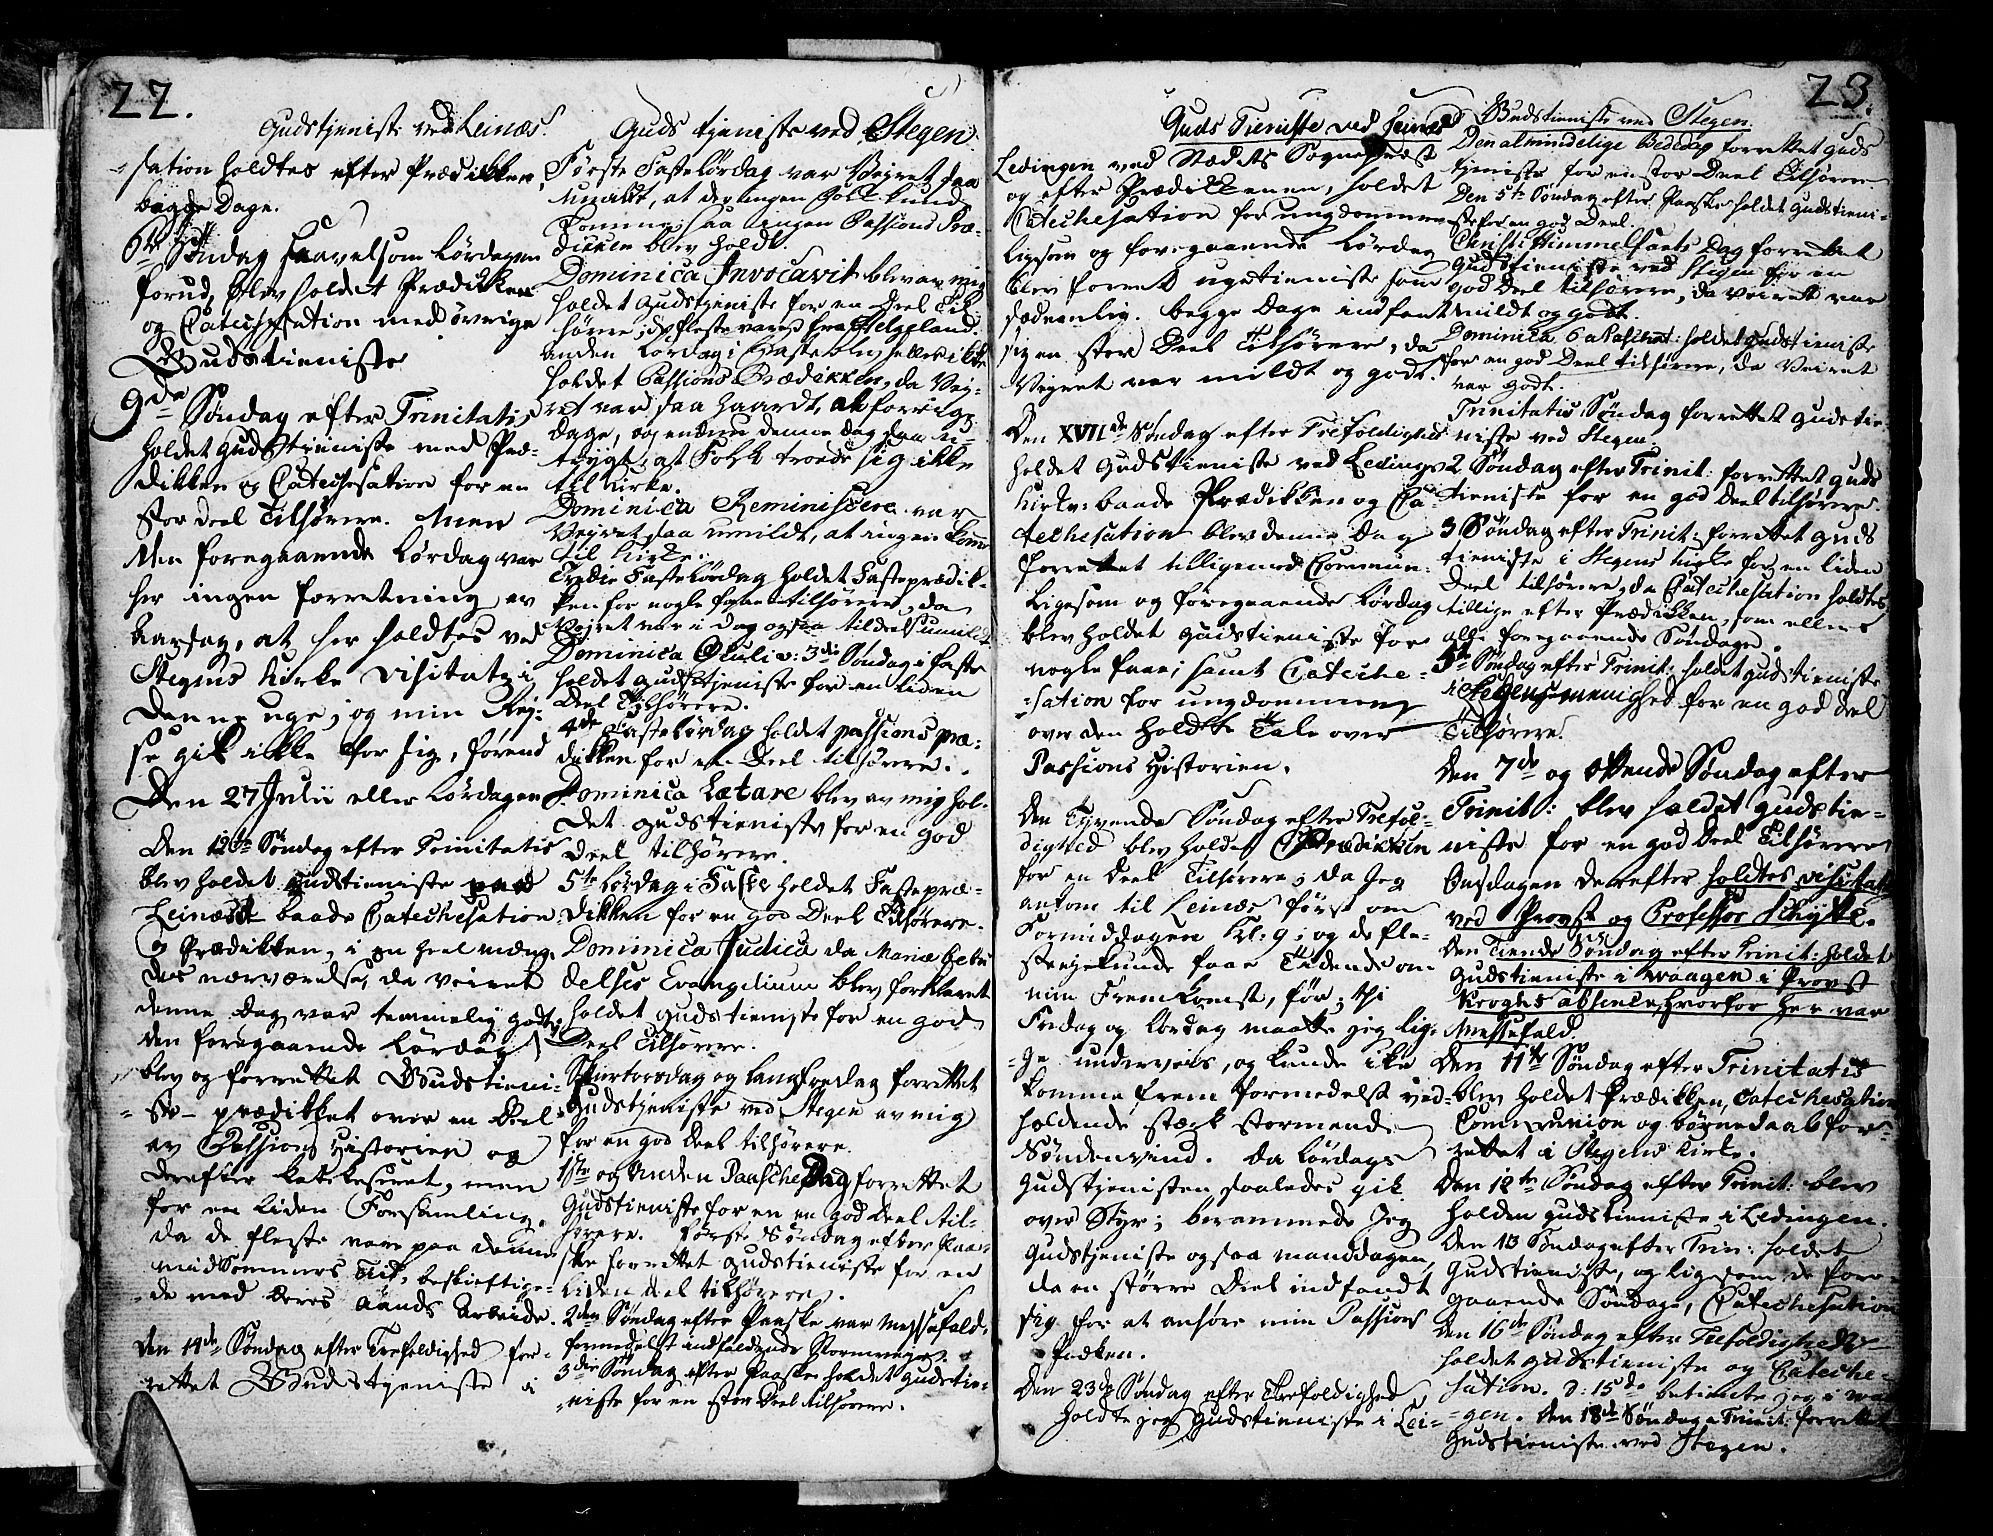 22.
Gudstjeniste ved Leinæs.
sation holdtes efter Prædikken
begge Dage.
6te Søndag saavelsom Lørdagen
forud, blev holdet Prædikken
og Catechesation med øvrige
Gudstieniste
9de Søndag efter Trinitatis
holdet Gudstieniste med Præ-
dikken og Catechesation for en
stor Deel Tilhørere. Men
den foregaaende Lørdag var
her ingen forretning, av
aarsag, at her holdtes ved
Stegens Kirke Visitatz i
denne uge; og min Rej-
se gik ikke for sig, førend
Den 27 Julii eller Lørdagen
Den 12te Søndag efter Trinitatis
blev holdet Gudstieniste
Leinæs baade Catechesation
og Prædikken, i en heel mæng-
des nærværelse, da veiret
denne Dag var temmelig godt,
den foregaaende Lørdag
blev og forrettet Gudstieni-
ste prædikket over en Deel
av Passions Historien og
derefter katekeseret, men
for en liden Forsamling,
da de fleste vare paa denne
midsommers Tid, beskieftige-
de med deres Aands Arbeide.
Den 14de Søndag efter Trefoldighed for-
rettet Gudstjeniste i
Guds tjeniste ved Stegen
Første Fastelørdag var Vejret saa
umildt, at der ingen Folk kunde
komme, saa ingen Passions Præ-
dikken blev holdt.
Dominica Invocavit blev av mig
holdet Gudstjeniste for en Deel Til-
hørere; de fleste vare fra Helgeland.
anden Lørdag i Faste blev hellers ikke
holdet Passions Prædikken, da Vej-
ret var saa haardt, at forrige
Dage, og endnu denne Dag saa u-
trygt, at Folk troede sig ikke
til Kirke.
Dominica Reminiscere var
Vejret saa umildt, at ingen komme
til Kirke.
Tredie Fastelørdag holdet Fasteprædik-
ken for nogle faae tilhørere, da
Vejret var i Dag ogsaa tildeels umildt
Dominica Oculi v: 3die Søndag i Faste
holdet Gudstjeniste for en liden
Deel Tilhørere.
4de Fastelørdag holdet passions præ-
dikken for en Deel tilhørere.
Dominica Lætare blev av mig hol-
det Gudstieniste for en god
Deel tilhørere.
5te Lørdag i Faste holdet Fastepræ-
dikken for en god Deel Tilhørere.
Dominica Judica da Mariæ Bebu
delses Evangelium blev forklaret
holdet Gudstieniste for en god
Deel Tilhørere.
Skiertorsdag og Langfredag forrettet
Gudstjeniste ved Stegen av mig
for en god Deel tilhørere.
1ste og Anden Paasche Dag forrettet
Gudstieniste for en en god Deel til-
hørere. Første Søndag efter Paa-
ske forrettet Gudstieniste for en
Liden deel tilhørere.
2den Søndag efter Paaske var Messefald,
formedelst indfaldende Stormvejr.
3die Søndag efter Paaske holdet Gudstie-
niste for en stor Deel tilhørere.
23.
Guds Tieniste ved Leines
Ledingen ved Stædets Sognepræst
og efter Prædikkenen, holdet
Catechesation for ungdommen
ligsom og foregaaende Lørdag
blev forret ugetieniste som
sædvanlig. begge Dage indfant
sig en stor Deel Tilhørere, da
Vejret var mildt og godt.
Den XVII de Søndag efter Trefoldighed
holdet Gudstieniste ved Ledings
Kirke: baade Prædikken og Ca-
techesation blev denne Dag
forrettet tilligemed Commun:
Ligesom og foregaaende Lørdag
blev holdet Gudstieniste for
nogle faae; samt Cateche-
sation for ungdommen
over den holdte Tale over
Passions Historien.
Den Tyvende Søndag efter Trefol-
dighed blev holdet Prædikken
for en Deel Tilhørere; da Jeg
ankom til Leines først om
Formiddagen Kl: 9; og de fle-
ste ej kunde faae Tidende om
min Fremkomst, før; thi
Fredag og Lørdag maatte jeg lig-
ge underveis, og kunde ikke
komme frem formedelst ved-
holdende stærk stormende
Søndenvind. Da Lørdags
Gudstjenisten saaledes gik
over Styr; berammede Jeg
Gudstjeniste ogsaa Manddagen,
da en større Deel indfandt
sig for at anhøre min Passions
Præken.
Den 23de Søndag efter Trefoldighed
holdte jeg Gudstieniste i Lei-
Gudstieniste ved Stegen.
Den almindelige Bededag forrettet Guds
tjeniste for en stor Deel Tilhørere.
Den 5te Søndag efter Paaske holdet Gudstieni-
ste for en god Deel.
Christi Himmelfarts Dag forrettet
Gudstieniste ved Stegen for en
god Deel tilhørere, da Veiret var
mildt og godt.
Dominica 6 a Paschat: holdet Gudstieniste
for en god Deel tilhørere, da Veiret
var godt.
Trinitatis Søndag forrettet Gudstie-
niste ved Stegen.
2 Søndag efter Trinit: forrettet Guds
tieniste for en god Deel tilhørere.
3 Søndag efter Trinit: forrettet Guds
tieniste i Stegens Kirke for en liden
Deel tilhørere, da Catechesation holdtes
tillige efter Prædikken, som ellers
alle foregaaende Søndage.
5te Søndag efter Trinit: holdet Gudstieniste
i Stegens menighed for en god deel
Tilhørere.
Den 7de og Ottende Søndag efter
Trinit: blev holdet Gudstie-
niste for en god Deel Tilhørere
Onsdagen derefter holdtes visitatz
ved Provst og Professor Schytte.
Den Tiende Søndag efter Trinit: holdet
Gudstieniste i Waagen i Provst
Kroghs absence, hvorfor her var
Messefald.
Den 11te Søndag efter Trinitatis
blev holdet Prædikken, Catechesation
Communion og børnedaab for-
rettet i Stegens Kirke.
Den 12te Søndag efter Trinit: blev
holden Gudstieniste i Ledingen.
Den 13 Søndag efter Trin: holdet
Gudstieniste, og ligesom de fore-
gaaende Søndage, Catechesation
Den 16de Søndag efter Trefoldigheds
holdet Gudstieniste og Cateche-
sation. d: 15de betiente jeg i Waa
gen. Den 18de Søndag e Trinit: forrettet
Gudstieniste ved Stegen.